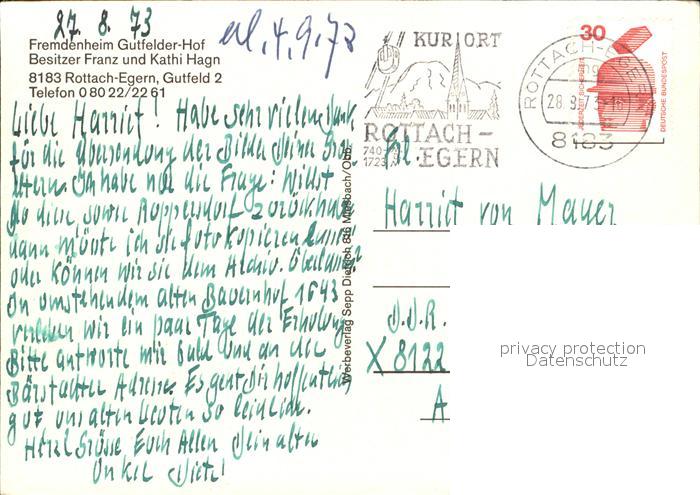 27. 8. 73
el. 4. 9. 73
Fremdenheim Gutfelder-Hof
Besitzer Franz und Kathi Hagn
8183 Rottach-Egern, Gutfeld 2
Telefon 0 80 22/22 61
Liebe Harriet! Habe sehr vielen Dank,
für die Übersendung der Bilder Deiner
Eltern. Ich habe nur die Frage: Willst
Du diese, sowie Ruppersdorf zurückhaben
dann müsste ich sie fotokopieren lassen
oder können wir sie dem Archiv überlassen?
In umstehendem alten Bauernhof 1643
verleben wir ein paar Tage der Erholung
Bitte antworte mir bald und an die
Adresse. Es geht Dir hoffentlich
gut, uns alten Leuten so leidlich.
Herzl. Grüsse Euch Allen Dein alter
Onkel Dietz!
Werbeverlag Sepp Dietrich 816 Miesbach/Obb.
KURORT
ROTTACH-
EGERN
ROTTACH-EGERN
28.9.73-16
8183
30
JEDERZEIT SICHERHEIT
DEUTSCHE BUNDESPOST
Harriet von Mayer
D.D.R.
X 8122
A
privacy protection
Datenschutz